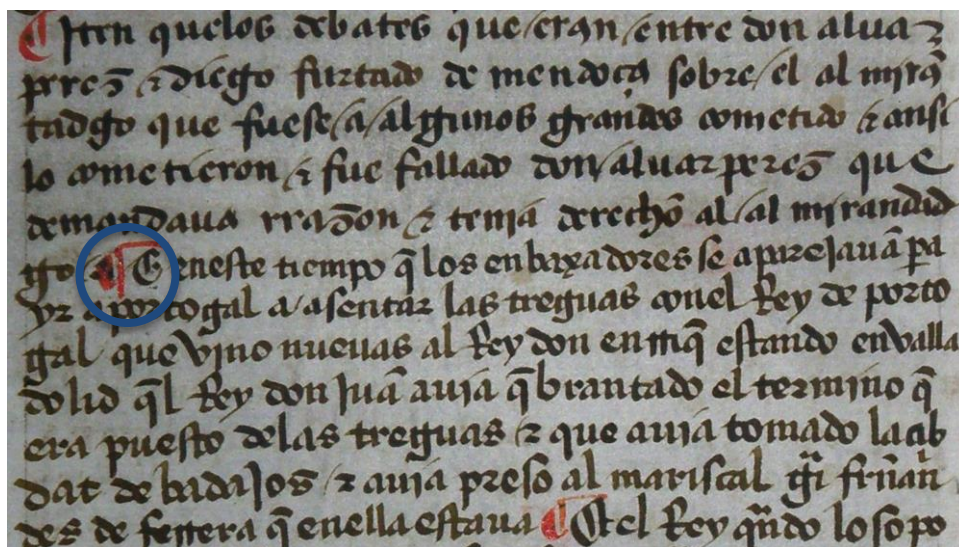 ¶ Iten quelos debates que eran entre don alua r
peres & diego furtado de mendoça sobre el al mirã
tadgo que fuese a algunos grandes cometido & ansi
lo cometieron & fue fallado don aluar peres que
demandaua rrazon & tenia derecho al al mirandad
go ¶ E eneste tiempo q̃ los enbaxadores se aparejauã pa
yr a portogal a asentar las treguas conel Rey de porto
gal que vino nueuas al Rey don enrriq̃ estando envalla
dolid q̃l Rey don juã auia q̃brantado el termino q̃
era puesto delas treguas & que auia tomado la cib
dat de badajos & auia preso al mariscal frñan
des de ferrera q̃ enella estaua ¶ Et el Rey qñdo lo sopo